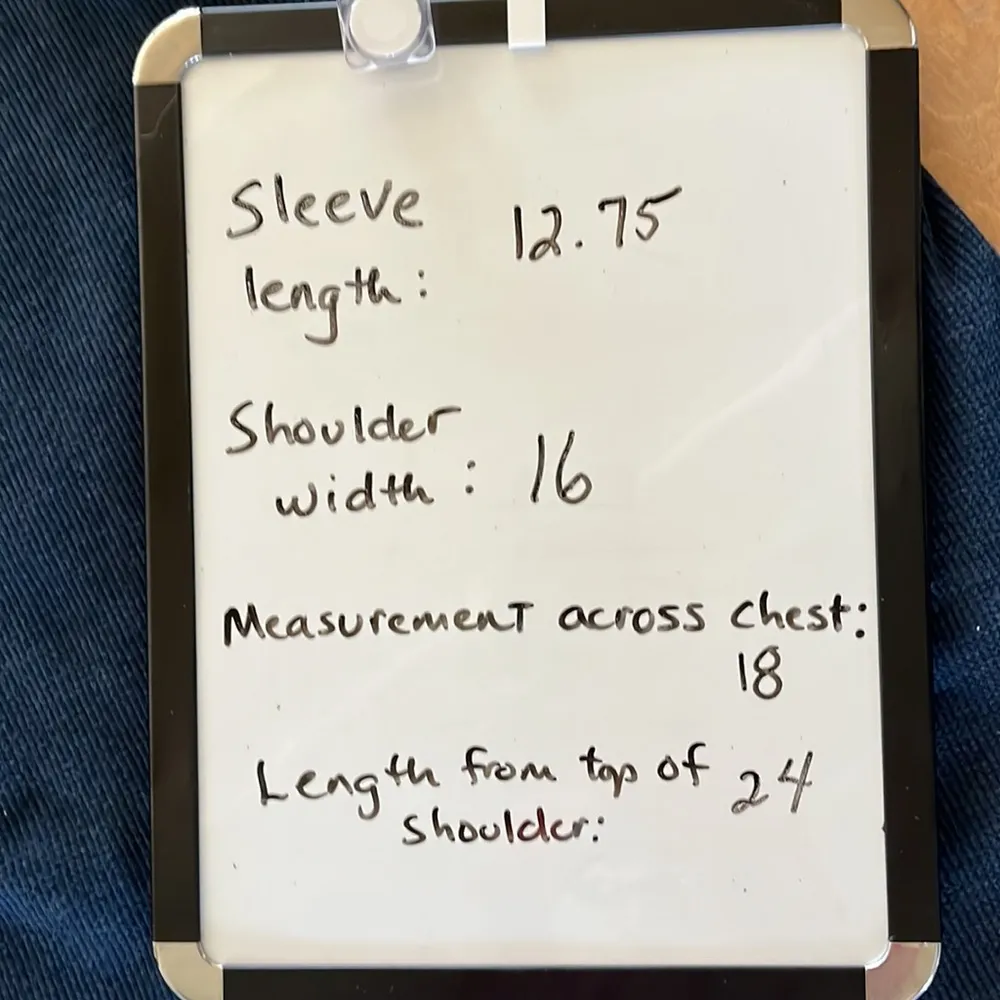 Sleeve
length: 12.75
Shoulder
width: 16
Measurement across chest:
18
Length from top of 24
shoulder: